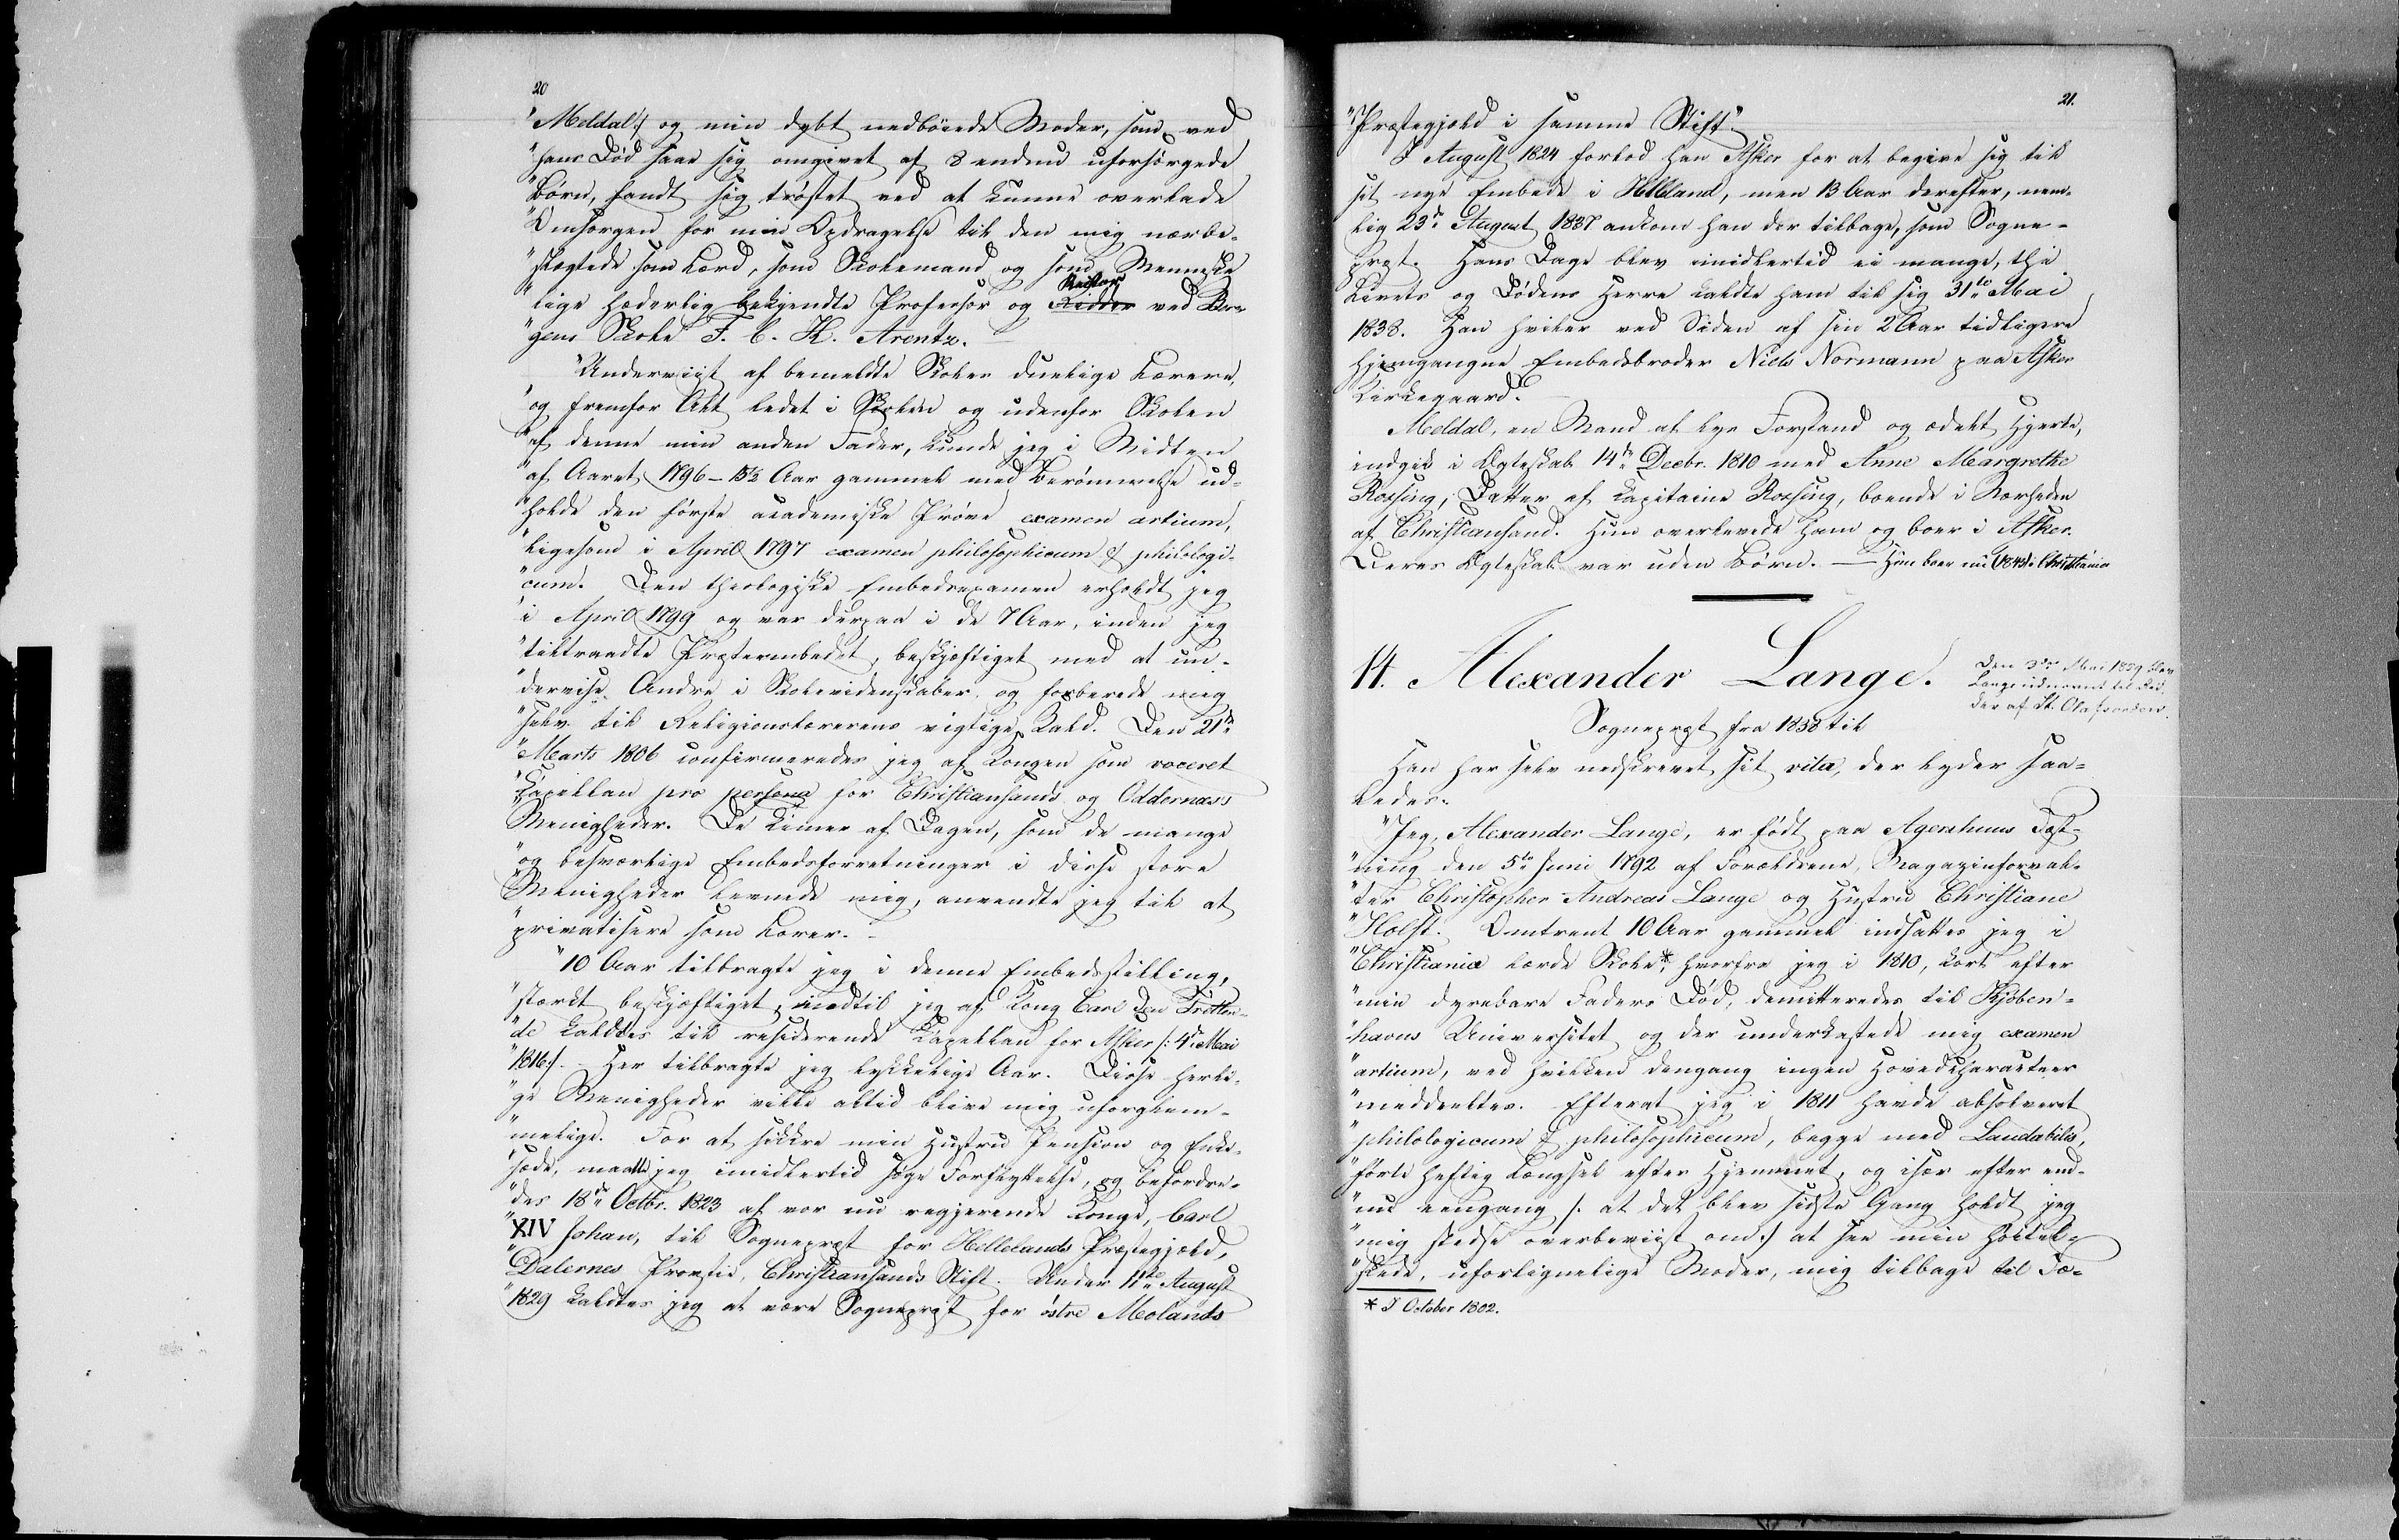 20
"Meldal:/ og min dybt nedböiede Moder, som ved
"hans Död saae sig omgivet af 8 endnu uforsörgede
"Börn, fandt sig tröstet ved at kunne overlade
"Omsorgen for min Opdragelse til den mig nærbe-
"slægtede som Lærd, som Skolemand og som Menneske
"lige hæderlig bekjendte Professor og Rector ved Ber-
"gens Skole F. C. H. Arentz. -
"Underviist af bemeldte Skoles duelige Lærere,
"og fremfor Alt ledet i Skolen og udenfor Skolen
"af denne min anden Fader, kunde jeg i Midten
"af Aaret 1796 - 15½ Aar gammel med Berömmelse ud-
"holde den förste academiske Pröve examen artium,
"ligesom i April 1797 examen philosophicum & philologi-
"cum. Den theologiske Embedsexamen erholdt jeg
"i April 1799 og var derpaa i de 7 Aar, inden jeg
"tiltraadte Præsteembedet, beskjæftiget med at un-
"dervise Andre i Skolevidenskaber og forberede mig
"selv til Religionslærerens vigtige Kald. Den 21de
"Marts 1806 confirmeredes jeg af Kongen som voceret
"Kapellan pro persona for Christiansands og Oddernæss
"Menigheder. De Timer af Dagen, som de mange
"og besværlige Embedsforretninger i disse store
"Menigheder levnede mig, anvendte jeg til at
"privatisere som Lærer. -
"10 Aar tilbragte jeg i denne Embedsstilling,
"stærkt beskjæftiget, indtil jeg af Kong Carl den Tretten-
"de kaldtes til residerende Kapellan for Asker /: 4de Mai
"1816:/. - Her tilbragte jeg lykkelige Aar. Disse herli-
"ge Menigheder ville altid blive mig uforglem-
"melige. For at sikkre min Hustru Pension og Enke-
"sæde, maatte jeg imidlertid söge Forflyttelse, og befordre-
"des 18de Octbr. 1823 af vor nu regjerende Konge, Carl
"XIV Johan, til Sogneprest for Hellelands Præstegjeld,
"Dalernes Provstie, Christiansands Stift. Under 11te August
"1829 kaldtes jeg at være Sogneprest for östre Molands
21.
"Præstegjeld i samme Stift"
I August 1824 forlod han Asker for at begive sig til
sit nye Embede i Helleland, men 13 Aar derefter, nem-
lig 23de August 1837 ankom han der tilbage, som Sogne-
prest. Hans Dage blev imidlertid ei mange, thi
Livets og Dödens Herre kaldte ham til sig 31te Mai
1838. Han hviler ved Siden af sin 2 Aar tidligere
hjemgangne Embedsbroder Niels Normann paa Asker
Kirkegaard. -
Meldal, en Mand af lys Forstand og ædelt Hjerte,
indgik i Ægteskab 14de Decbr. 1810 med Anne Margrethe
Rossing, Datter af Kapitaine Rossing, boende i Nærheden
af Christiansand. Hun overlevede ham og boer i Asker.
Deres Ægteskab var uden Börn. - Hun boer nu (1843) i Christiania
14. Alexander Lange.
Den 3die Mai 1859 blev
Lange udnævnt til Rid-
der af St. Olafsorden.
Sogneprest fra 1838 til
Han har selv nedskrevet sit vita, der lyder saa-
ledes:
"Jeg, Alexander Lange, er födt paa Agershuus Fæst-
"ning den 5te Juni 1792 af Forældrene, Magazinforval-
"ter Christopher Andreas Lange og Hustru Christiane
"Holst. Omtrent 10 Aar gammel indsattes jeg i
"Christiania lærde Skole*, hvorfra jeg i 1810, kort efter
"min dyrebare Faders Död, demitteredes til Kjöben-
"havns Universitet og der underkastede mig examen
"artium, ved hvilken dengang ingen Hovedcharacteer
"meddeeltes. Efterat jeg i 1811 havde absolveret
"philologicum & philosophicum, begge med Laudabilis,
"förte heftig Længsel efter Hjemmet, og især efter end-
"nu eengang /: at det blev sidste Gang holdt jeg
"mig stedse overbeviist om:/ at see min höitel-
"skede, uforlignelige Moder, mig tilbage til Fæ-
* I October 1802.